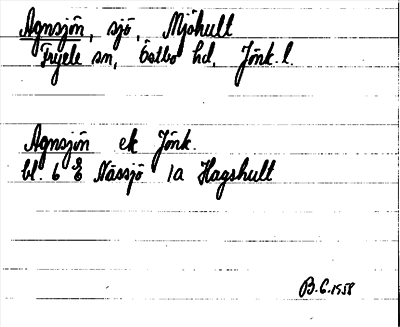 Agnsjön, sjö, Mjöhult
Fryele sn, Östbo hd, Jönk. l.
Agnsjön ek Jönk.
bl. 6 E Nässjö 1a Hagshult
B.G. 1958